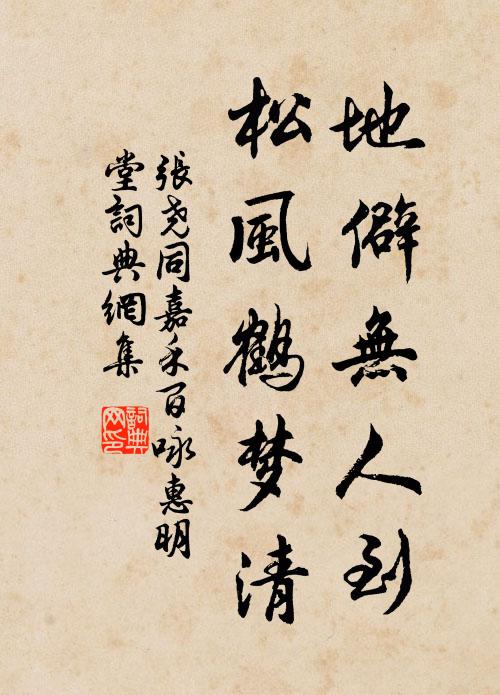 地僻無人到
松風鶴梦清
張尧同嘉禾百咏惠明
堂詞典網集
詞典网印